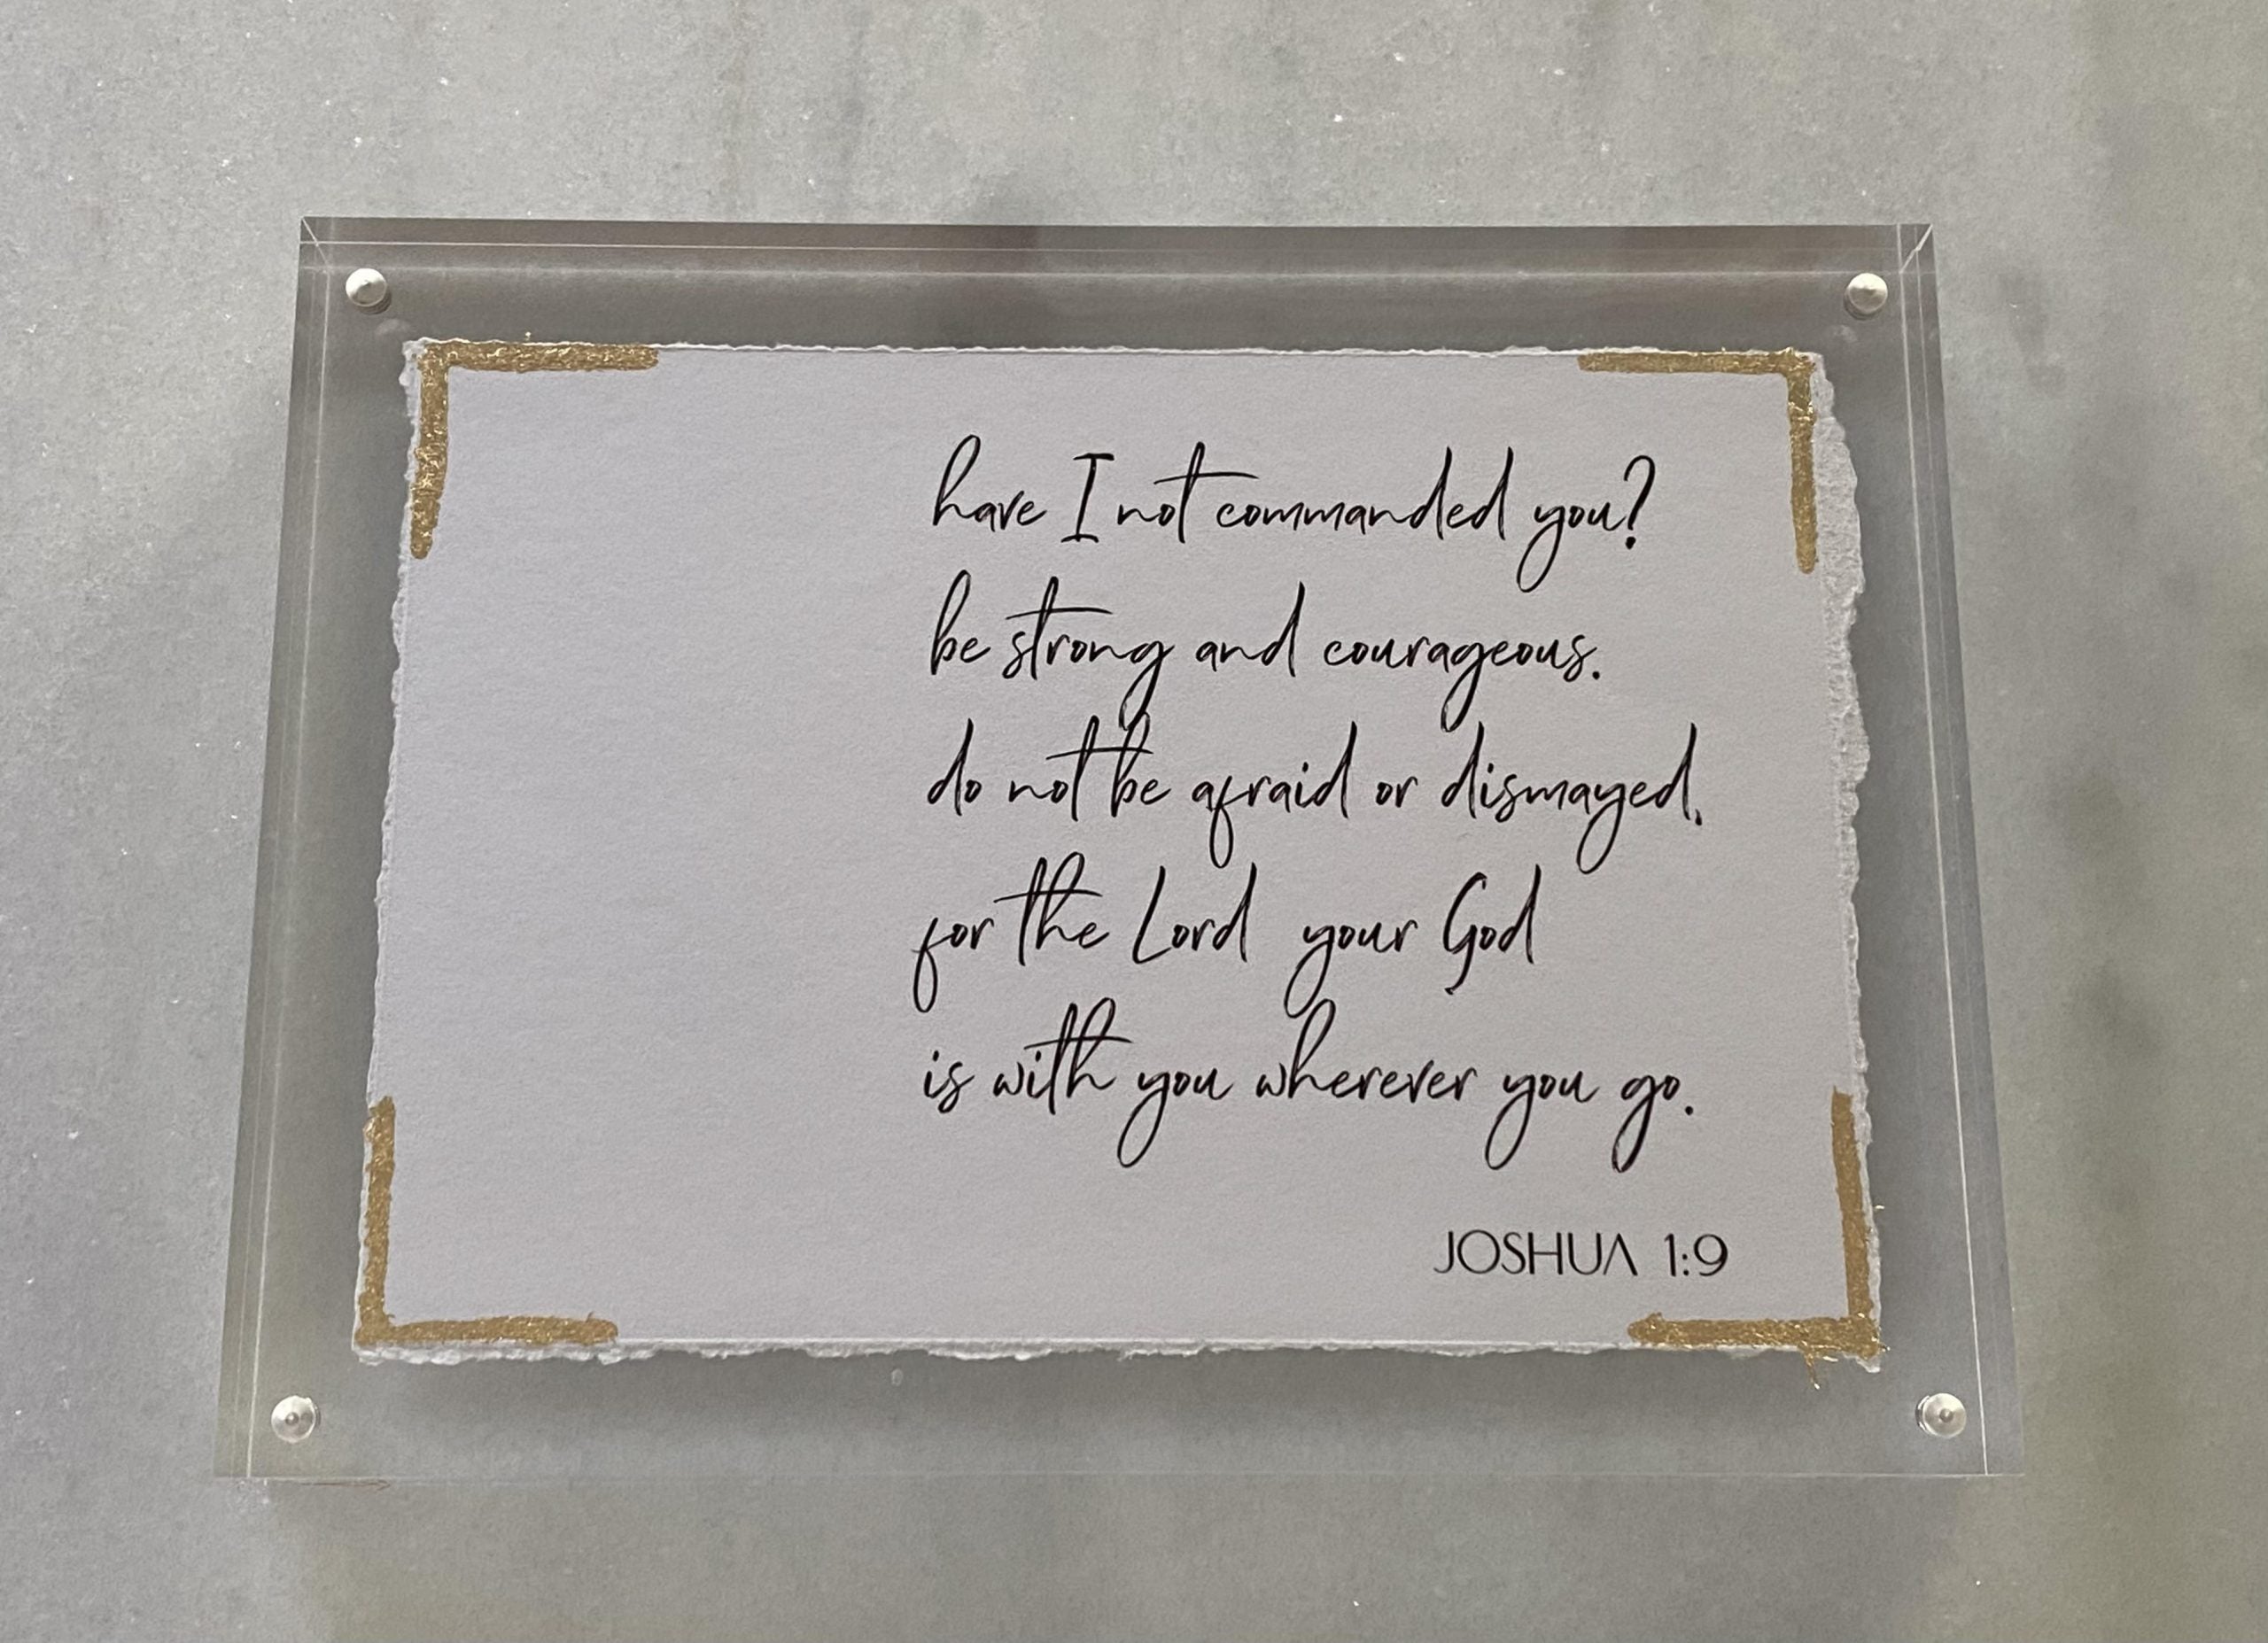 have I not commanded you?
be strong and courageous.
do not be afraid or dismayed,
for the Lord your God
is with you wherever you go.
JOSHUA 1:9